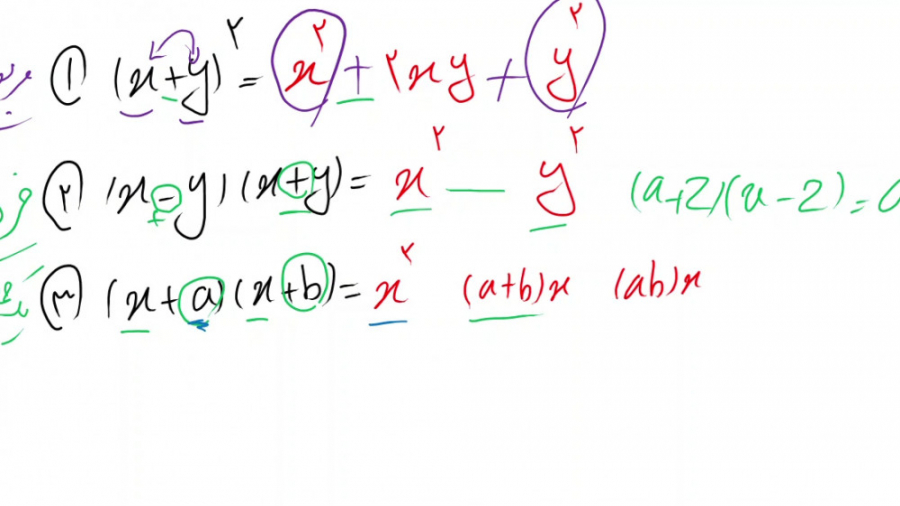 ۱ (x+y)^۲ = x^۲ + ۲xy + y^۲
۲ (x-y)(x+y) = x^۲ — y^۲ (a+2)(a-2)=
۳ (x+a)(x+b) = x^۲ (a+b)x (ab)x